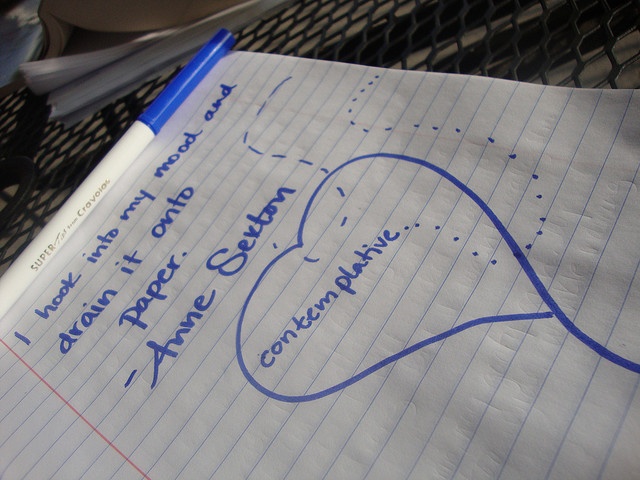 I hook into my mood and
drain it onto
paper.
- Anne Sexton
contemplative.
SUPER Crayolas